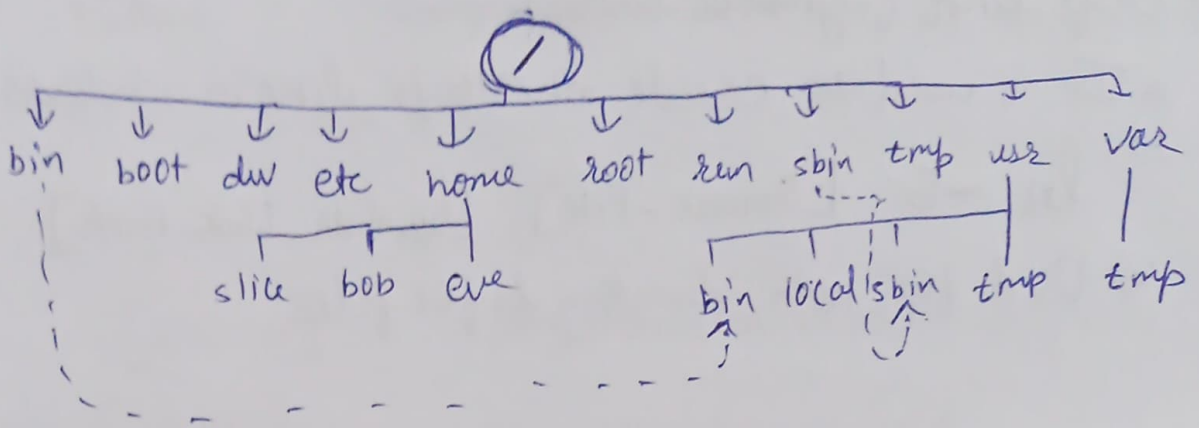 /
bin boot dev etc home root run sbin tmp usr var
slice bob eve bin local sbin tmp tmp